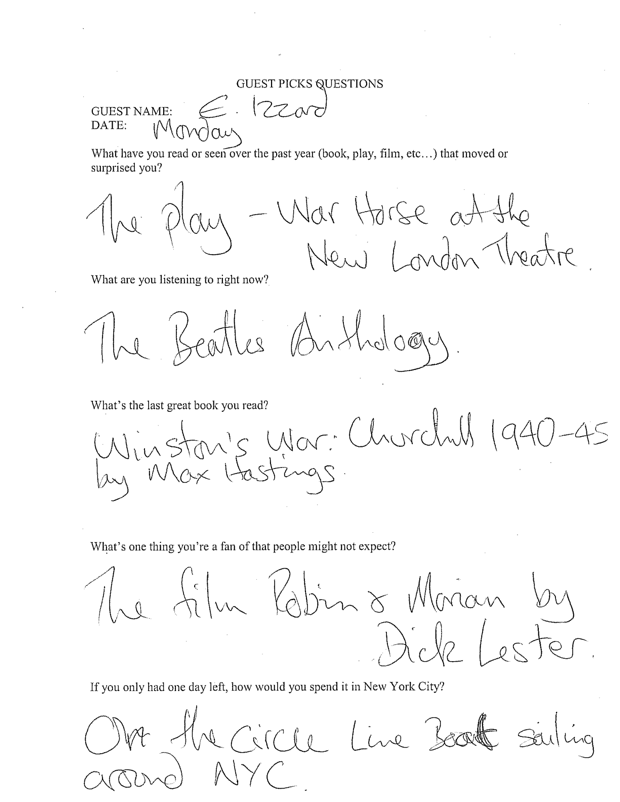 GUEST PICKS QUESTIONS
GUEST NAME: E. Izzard
DATE: Monday
What have you read or seen over the past year (book, play, film, etc…) that moved or
surprised you?
The play – War Horse at the
New London Theatre.
What are you listening to right now?
The Beatles Anthology.
What's the last great book you read?
Winston's War: Churchill 1940–45
by Max Hastings.
What's one thing you're a fan of that people might not expect?
The film Robin & Marian by
Dick Lester.
If you only had one day left, how would you spend it in New York City?
On the Circle Line Boat sailing
around NYC.